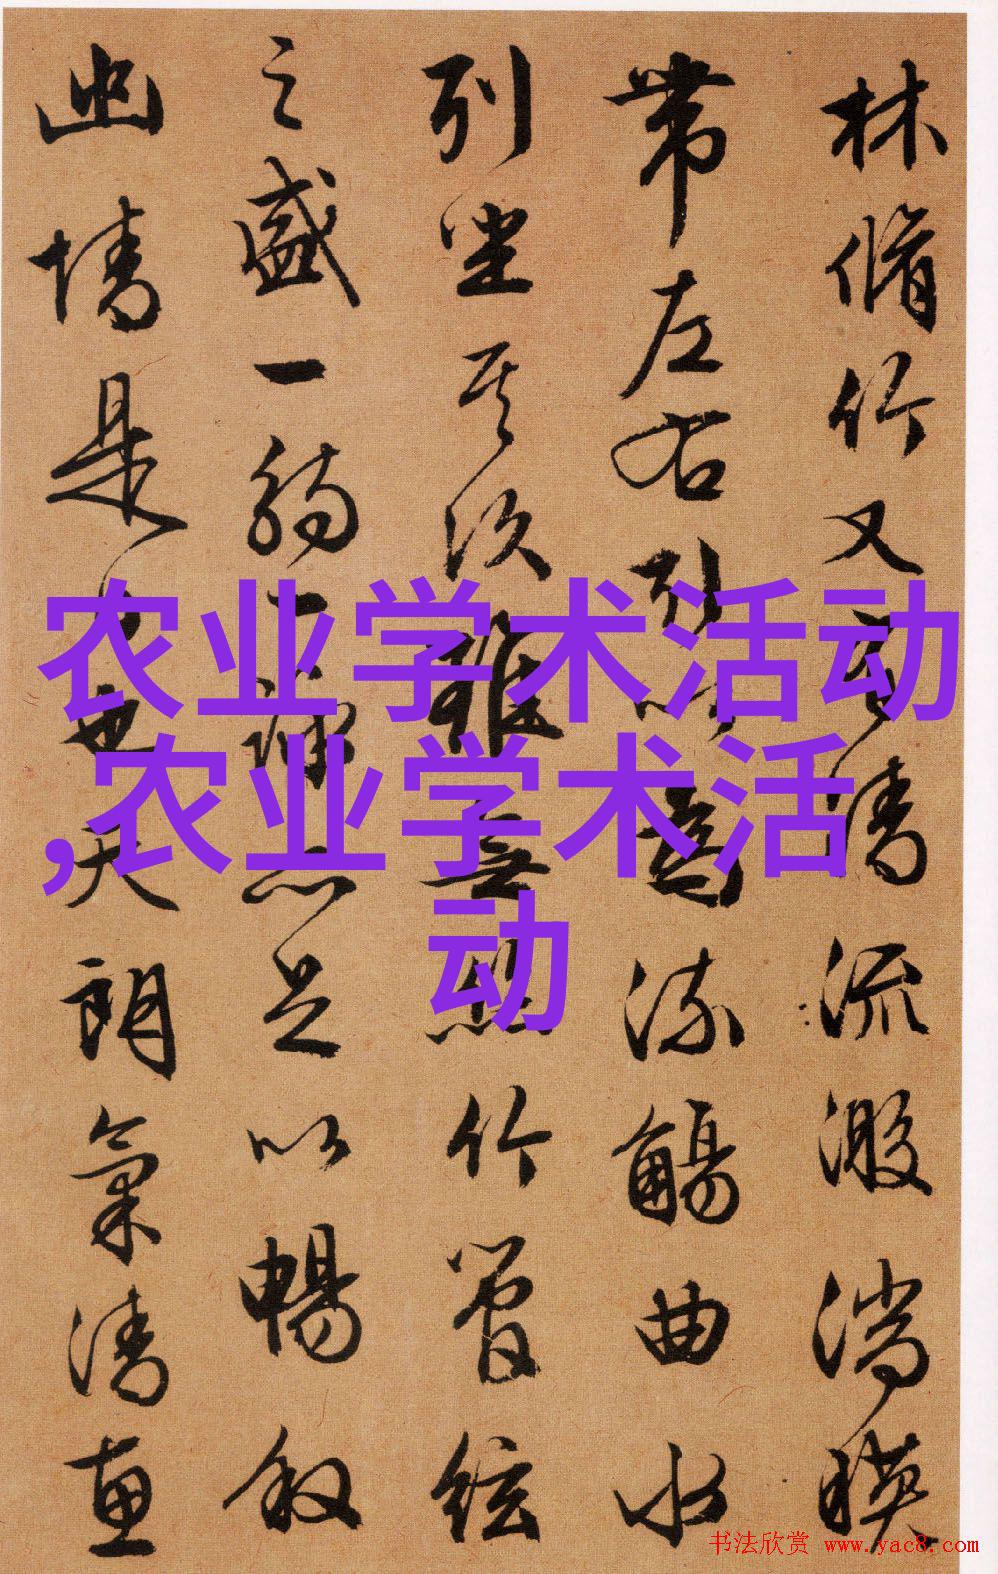 林脩竹又有清流激湍暎
带左右引以為流觴曲水
列坐其次雖無絲竹管絃
之盛一觴一詠亦足以暢叙
幽情是日也天朗氣清惠
农业学术活动
,农业学术活
动
书法欣赏 www.yac8.com